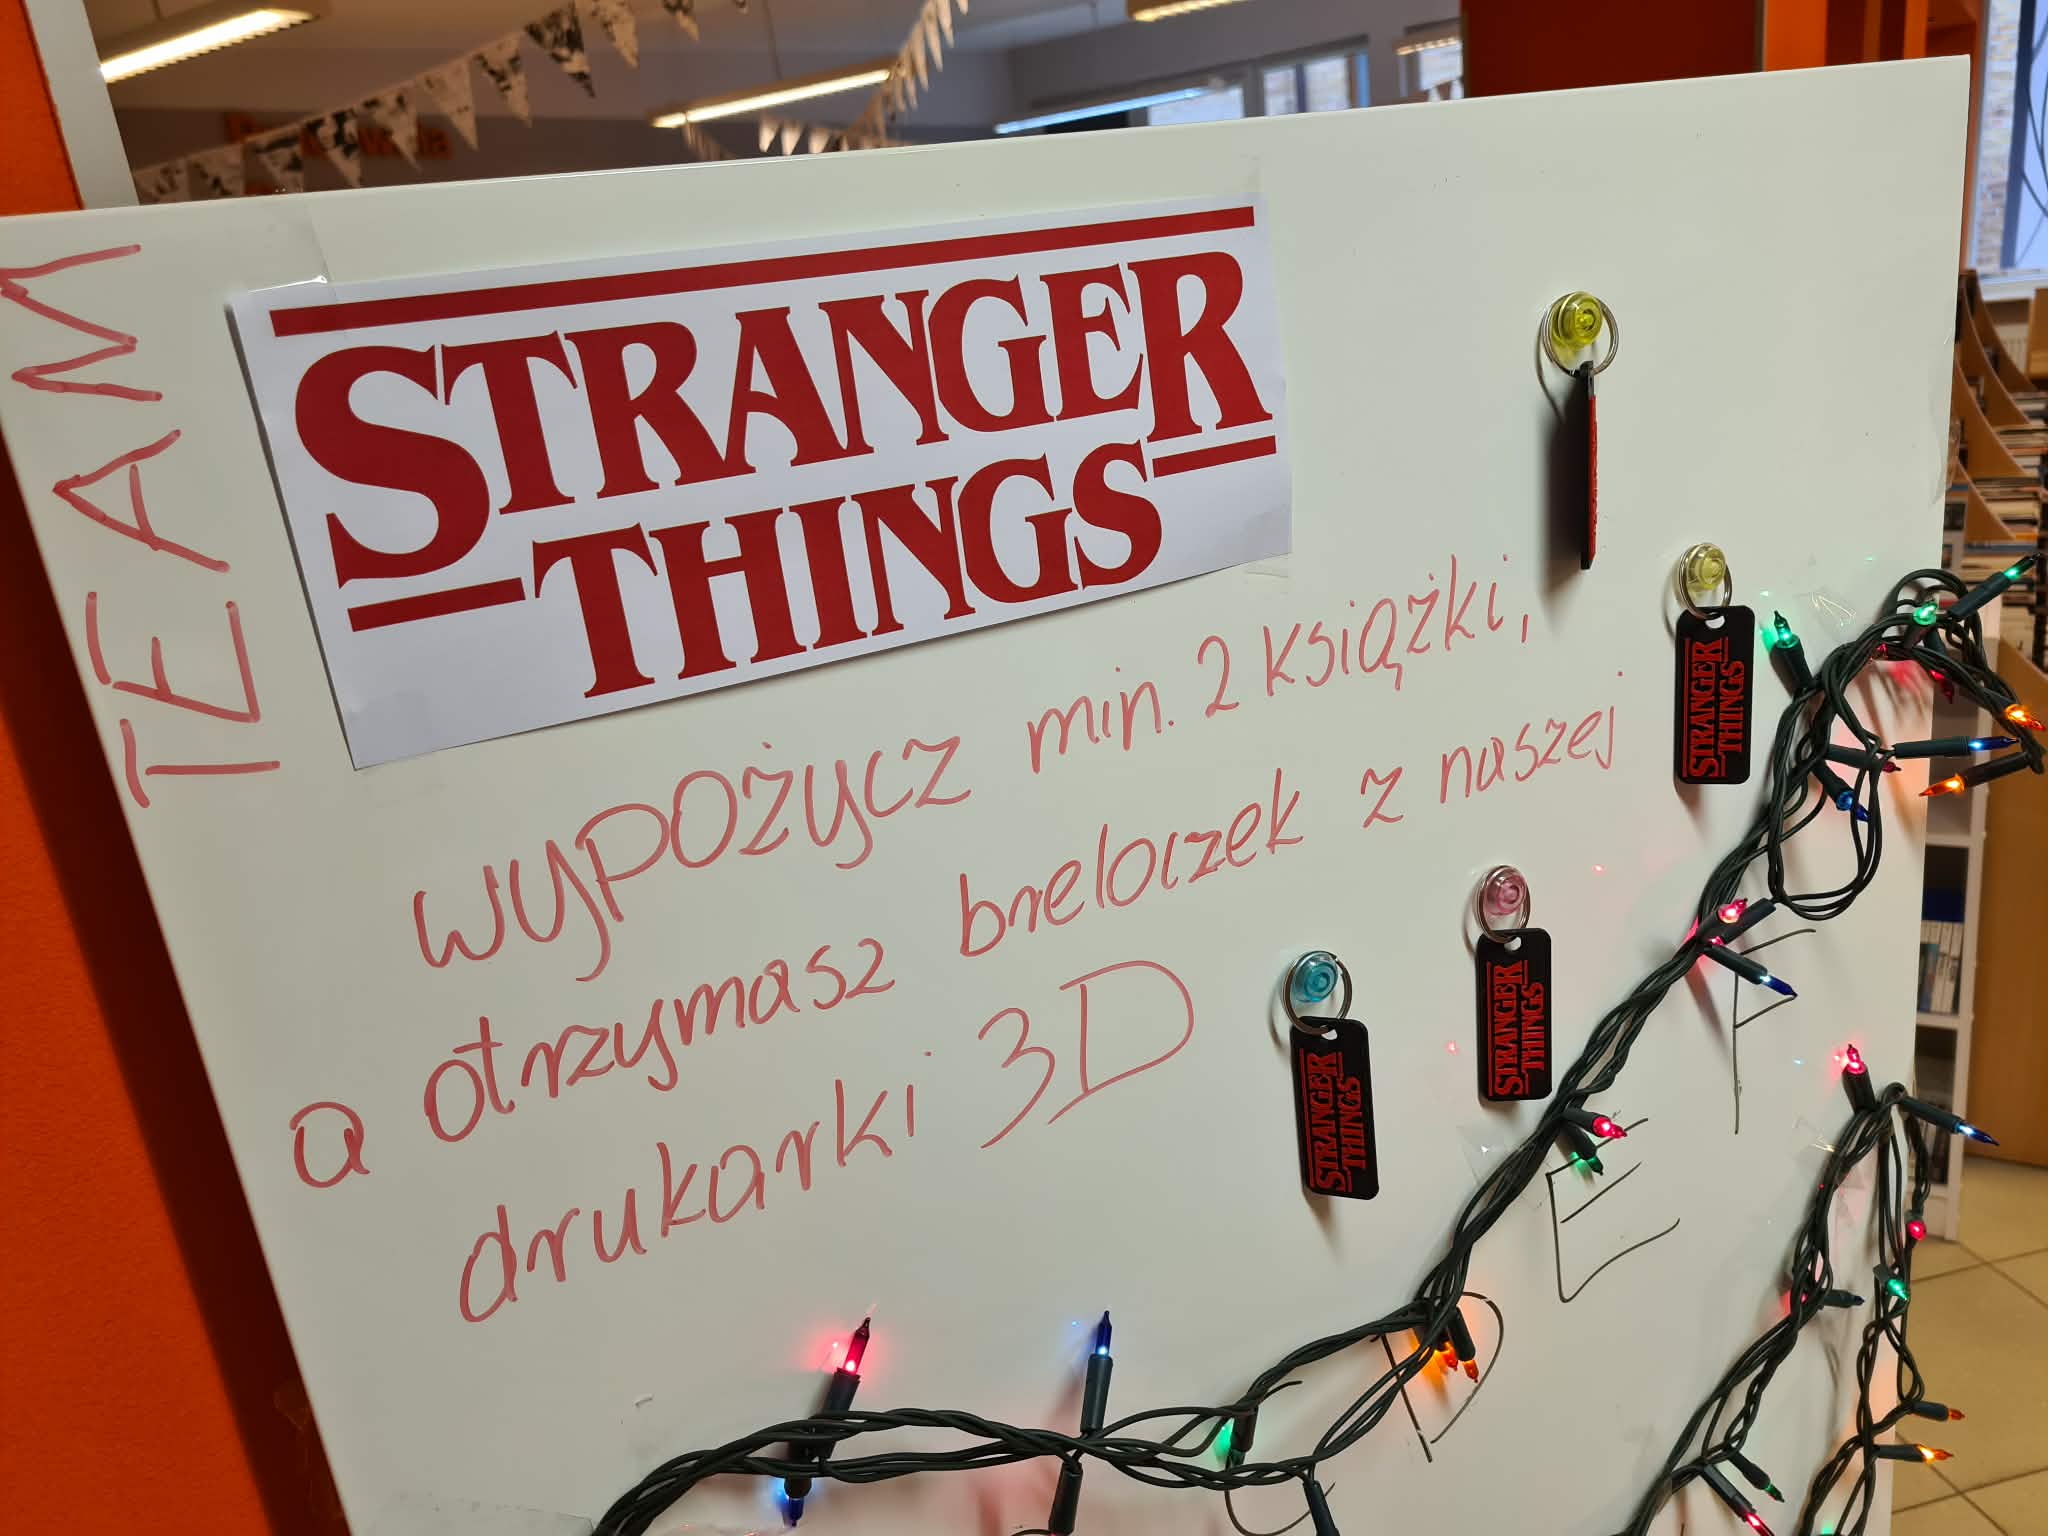 TEAM
STRANGER
THINGS
WYPOŻYCZ min. 2 KSIĄŻKI,
a otrzymasz breloczek z naszej
drukarki 3D
STRANGER
THINGS
STRANGER
THINGS
STRANGER
THINGS
F
E
D